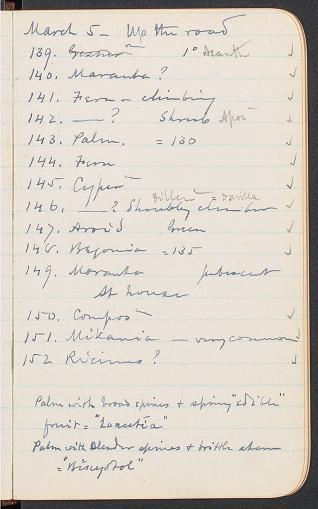 March 5 - Up the road
139. Gesner^n 1° Acanth ✓
140. Maranta? ✓
141. Fern - climbing ✓
142. ——? Shrub Apoc^n ✓
143. Palm. = 130 ✓
144. Fern ✓
145. Cyper^n ✓
Dillen^n =
146. ——? Shrubby climber ✓
147. Aroid Green ✓
148. Begonia = 135 ✓
149. Maranta pubescent ✓
At house
150. Compos^t ✓
151. Mikania - very common ✓
152 Ricinus? ✓
Palm with broad spines + spiny "edible"
fruit = "Lancetia"
Palm with slender spines + brittle stem
=